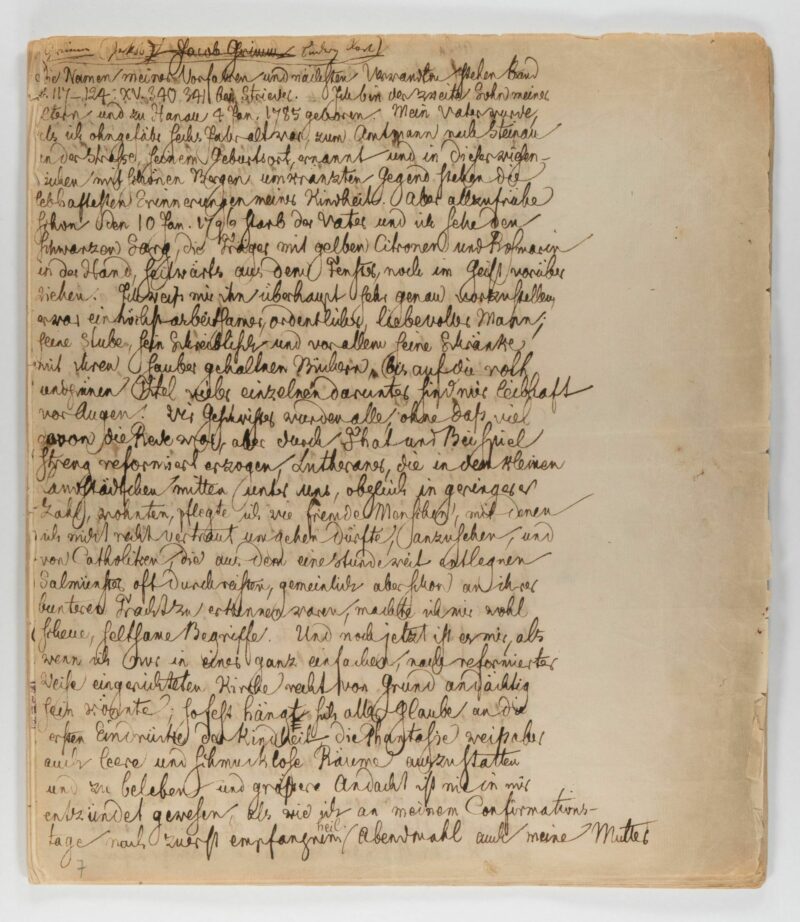 Grimm (Jakob Jacob Grimm Ludwig Karl)
Die Namen meiner Vorfahren und nächsten Verwandten stehen Band
s. 117–124. XV. 340 341 bei Strieder. Ich bin der zweite Sohn meiner
Eltern und zu Hanau 4 Jan. 1785 geboren. Mein Vater wurde,
als ich ohngefähr sechs Jahr alt war, zum Amtmann nach Steinau
in der Strasse, seinem Geburtsort, ernannt und in dieser wiesen-
reichen mit schönen Bergen umkränzten Gegend stehen die
lebhaftesten Erinnerungen meiner Kindheit. Aber allzufrühe
schon den 10 Jan. 1796 starb der Vater und ich sehe den
schwarzen Sarg, die Träger mit gelben Citronen und Rosmarin
in der Hand, seitwärts aus dem Fenster, noch im Geist vorüber
ziehen. Ich weiß mir ihn überhaupt sehr genau vorzustellen,
er war ein höchst arbeitsamer, ordentlicher, liebevoller Mann;
seine Stube, sein Schreibtisch und vor allem seine Schränke
mit ihren sauber gehaltnen Büchern, bis auf die roth
und grünen Titel vieler einzelnen darunter sind mir leibhaft
vor Augen. Wir Geschwister wurden alle, ohne daß viel
davon die Rede war, aber durch That und Beispiel
streng reformiert erzogen, Lutheraner, die in dem kleinen
Landstädtchen mitten unter uns, obgleich in geringerer
Zahl, wohnten, pflegte ich wie fremde Menschen, mit denen
ich nicht recht vertraut umgehen dürfte, anzusehen, und
von Catholiken, die aus dem eine Stunde weit entlegnen
Salmünster oft durchreisten, gemeinlich aber schon an ihrer
bunteren Tracht zu erkennen waren, machte ich mir wohl
scheue, seltsame Begriffe. Und noch jetzt ist es mir, als
wenn ich nur in einer ganz einfachen, nach reformierter
Weise eingerichteten Kirche recht von Grund andächtig
sein könnte; so fest hängt sich aller Glaube an die
ersten Eindrücke der Kindheit, die Phantasie weiß aber
auch leere und schmucklose Räume auszustatten
und zu beleben und größere Andacht ist nie in mir
entzündet gewesen, als wie ich an meinem Confirmations-
tage nach zuerst empfangnem heil. Abendmahl auch meine Mutter
7